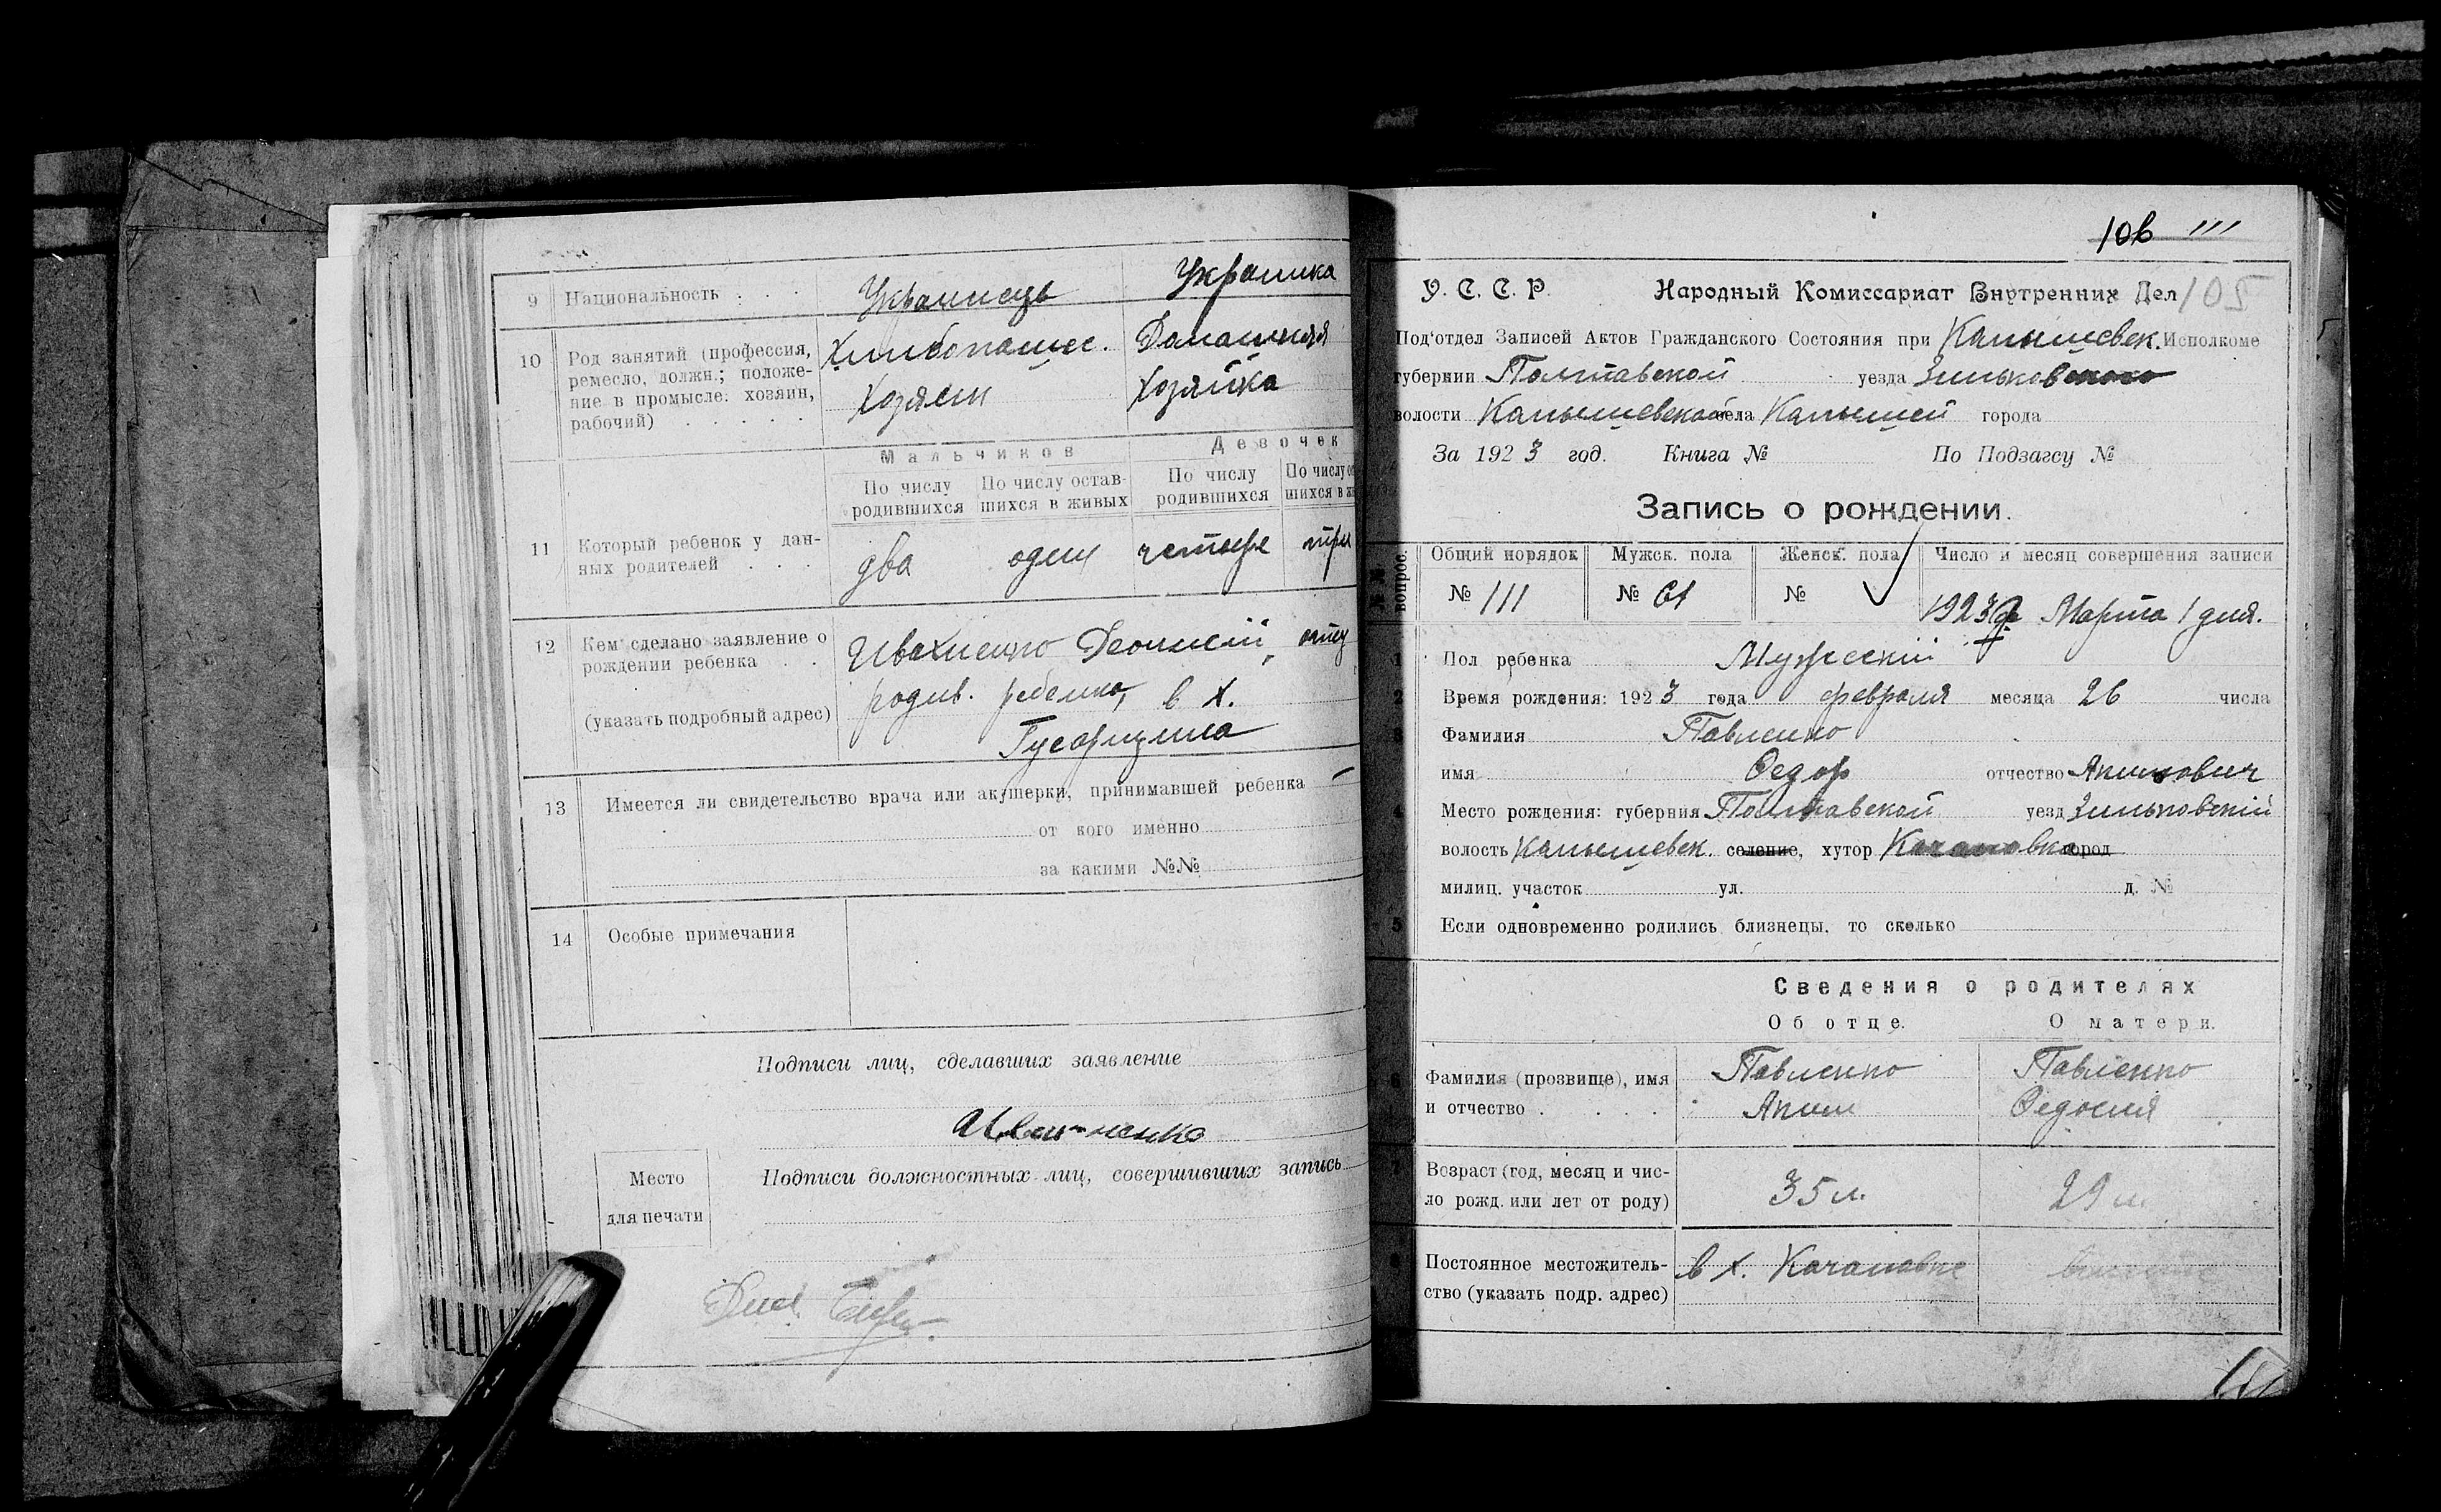 9 Национальность . . . Украинець Украинка
10 Род занятий (профессия, ремесло, должн.; положе-
ние в промысле: хозяин, рабочий) . . . . .
Хлибопашес. Домашняя
Хозяин Хозяйка
Мальчиков Девочек
По числу родившихся По числу остав-
шихся в живых По числу родившихся По числу
шихся в
11 Который ребенок у дан-
ных родителей . . .
два один четыре три
12 Кем сделано заявление о
рождении ребенка . .
(указать подробный адрес)
Ивахненко отец
родив. ребенка, в х.
Гусарщина
13 Имеется ли свидетельство врача или акушерки, принимавшей ребенка —
от кого именно
за какими №№
14 Особые примечания
Подписи лиц, сделавших заявление
Место
для печати
Подписи должностных лиц, совершивших запись
106 111
У. С. С. Р. Народный Комиссариат Внутренних Дел 105
Под'отдел Записей Актов Гражданского Состояния при Камышевск. Исполкоме
губернии Полтавской уезда Зиньковского
волости Камышевской села Камышей города
За 1923 год. Книга № По Подзагсу №
Запись о рождении.
№№ вопрос. Общий порядок Мужск. пола Женск. пола Число и месяц совершения записи
№ 111 № 61 № 1923 г. Марта 1 дня.
1 Пол ребенка Мужеский
2 Время рождения: 1923 года февраля месяца 26 числа
3 Фамилия Павленко
имя Федор отчество Акимович
4 Место рождения: губерния Полтавской уезд Зиньковский
волость Камышевск. селение, хутор Качановка город
милиц. участок ул. д. №
5 Если одновременно родились близнецы, то сколько
Сведения о родителях
Об отце. О матери.
6 Фамилия (прозвище), имя
и отчество . . . .
Павленко Павленко
Аким Федосия
7 Возраст (год, месяц и чис-
ло рожд. или лет от роду)
35 л. 29 л.
8 Постоянное местожитель-
ство (указать подр. адрес)
в х. Качановке